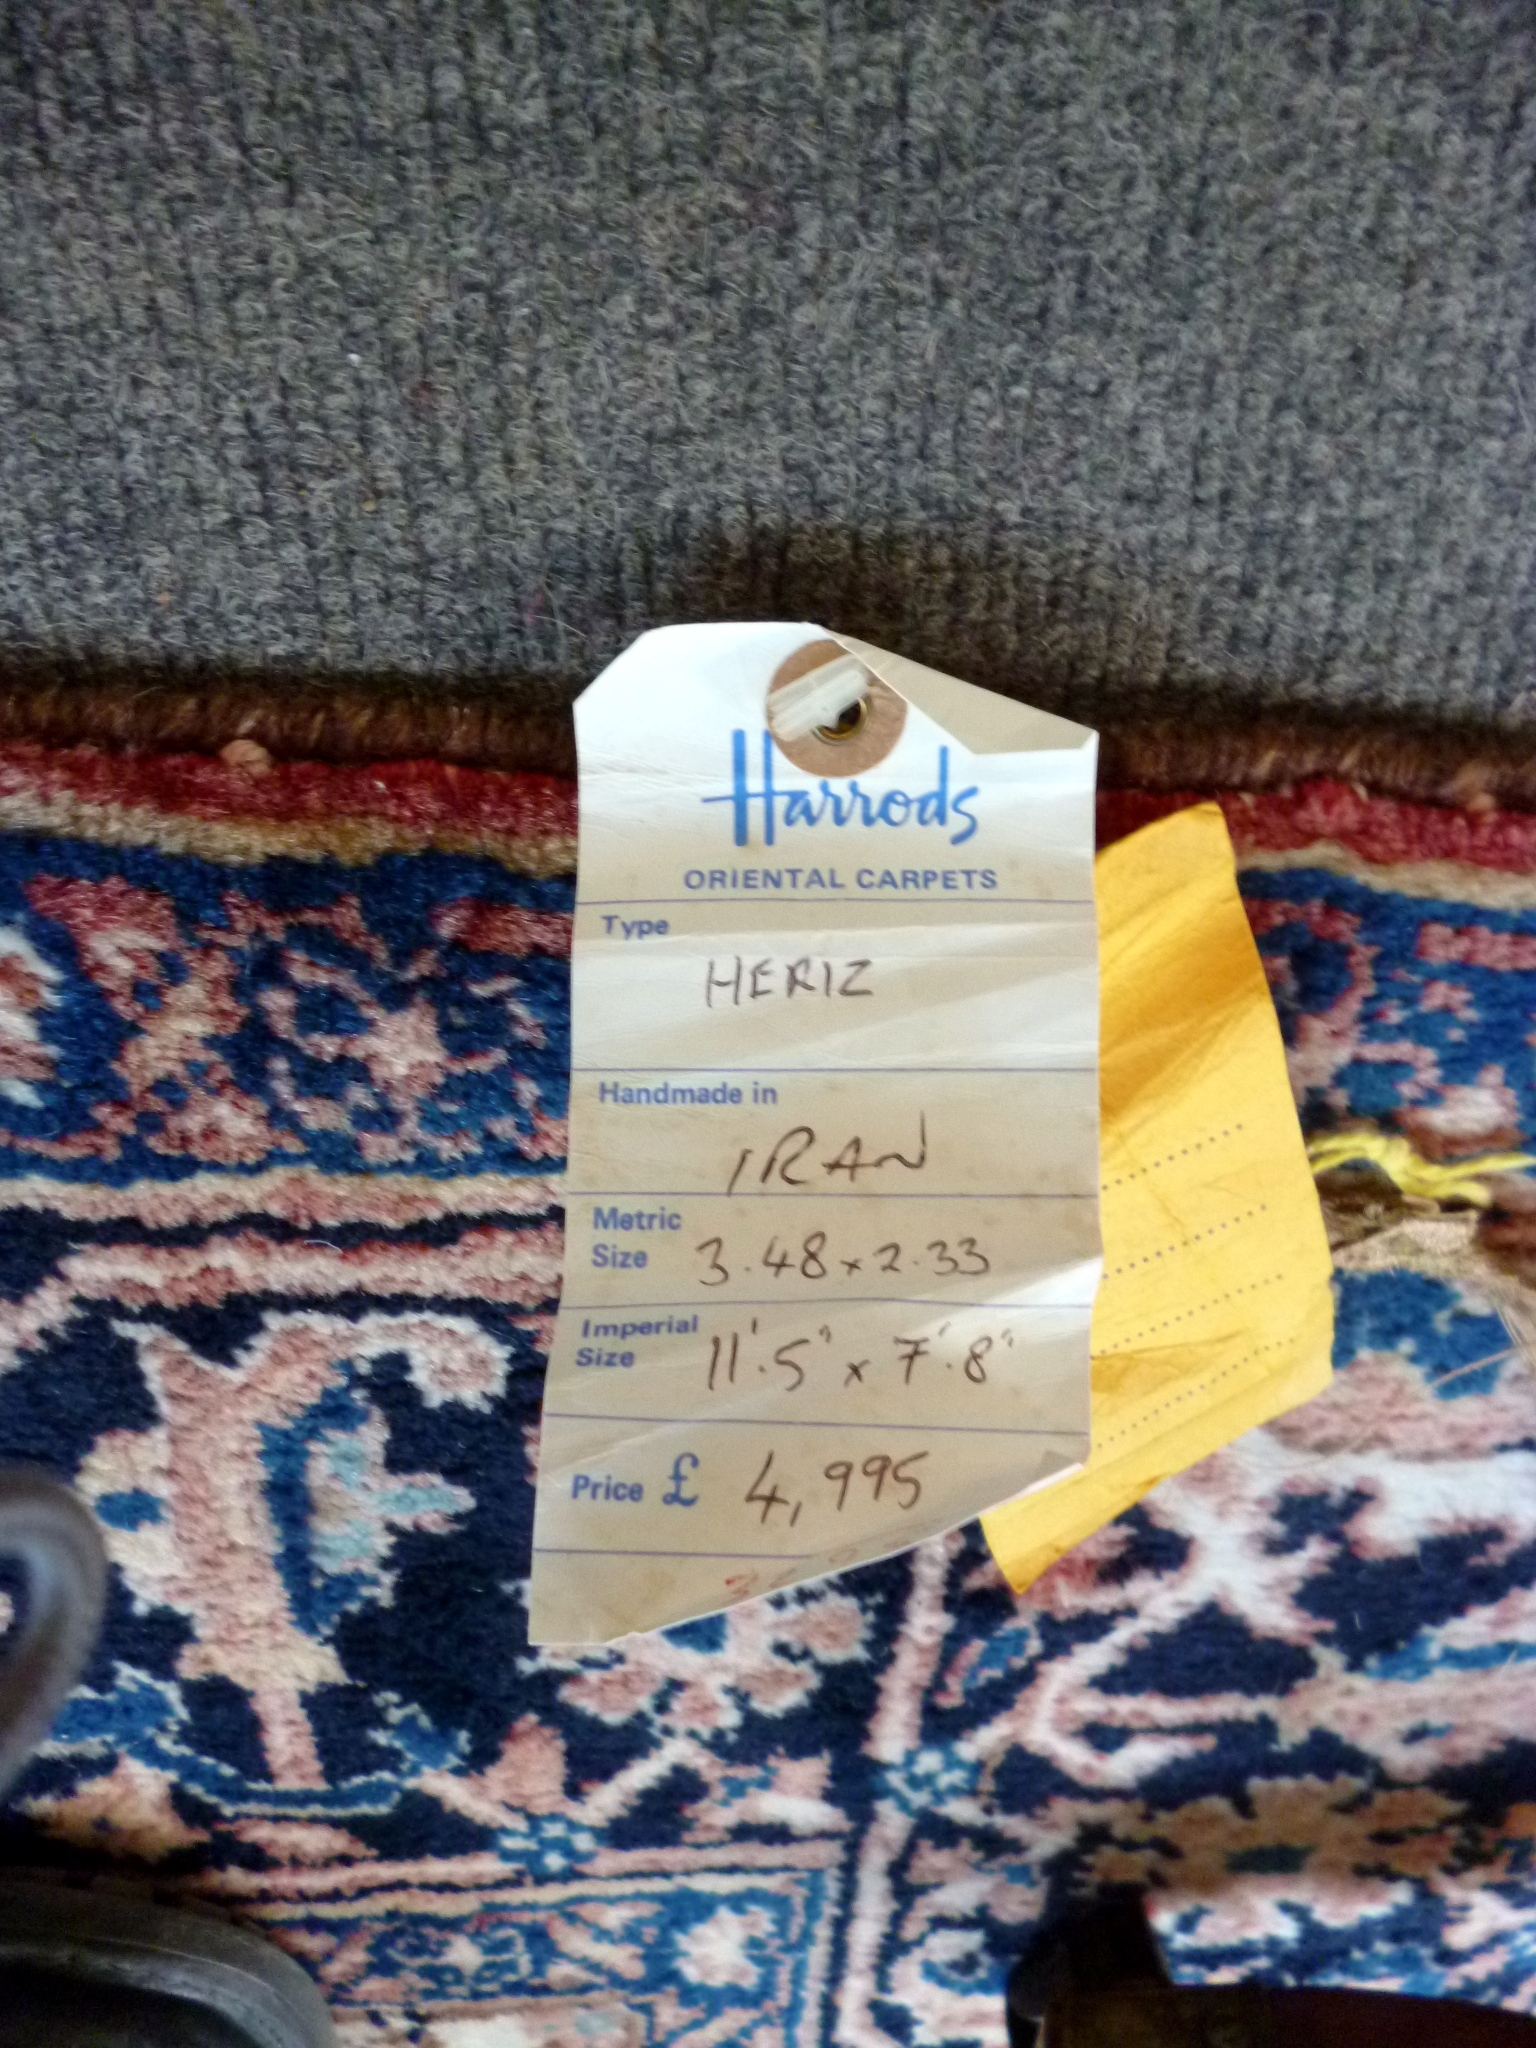 Harrods
ORIENTAL CARPETS
Type
HERIZ
Handmade in
IRAN
Metric Size 3.48 x 2.33
Imperial Size 11'.5" x 7'.8"
Price £ 4,995